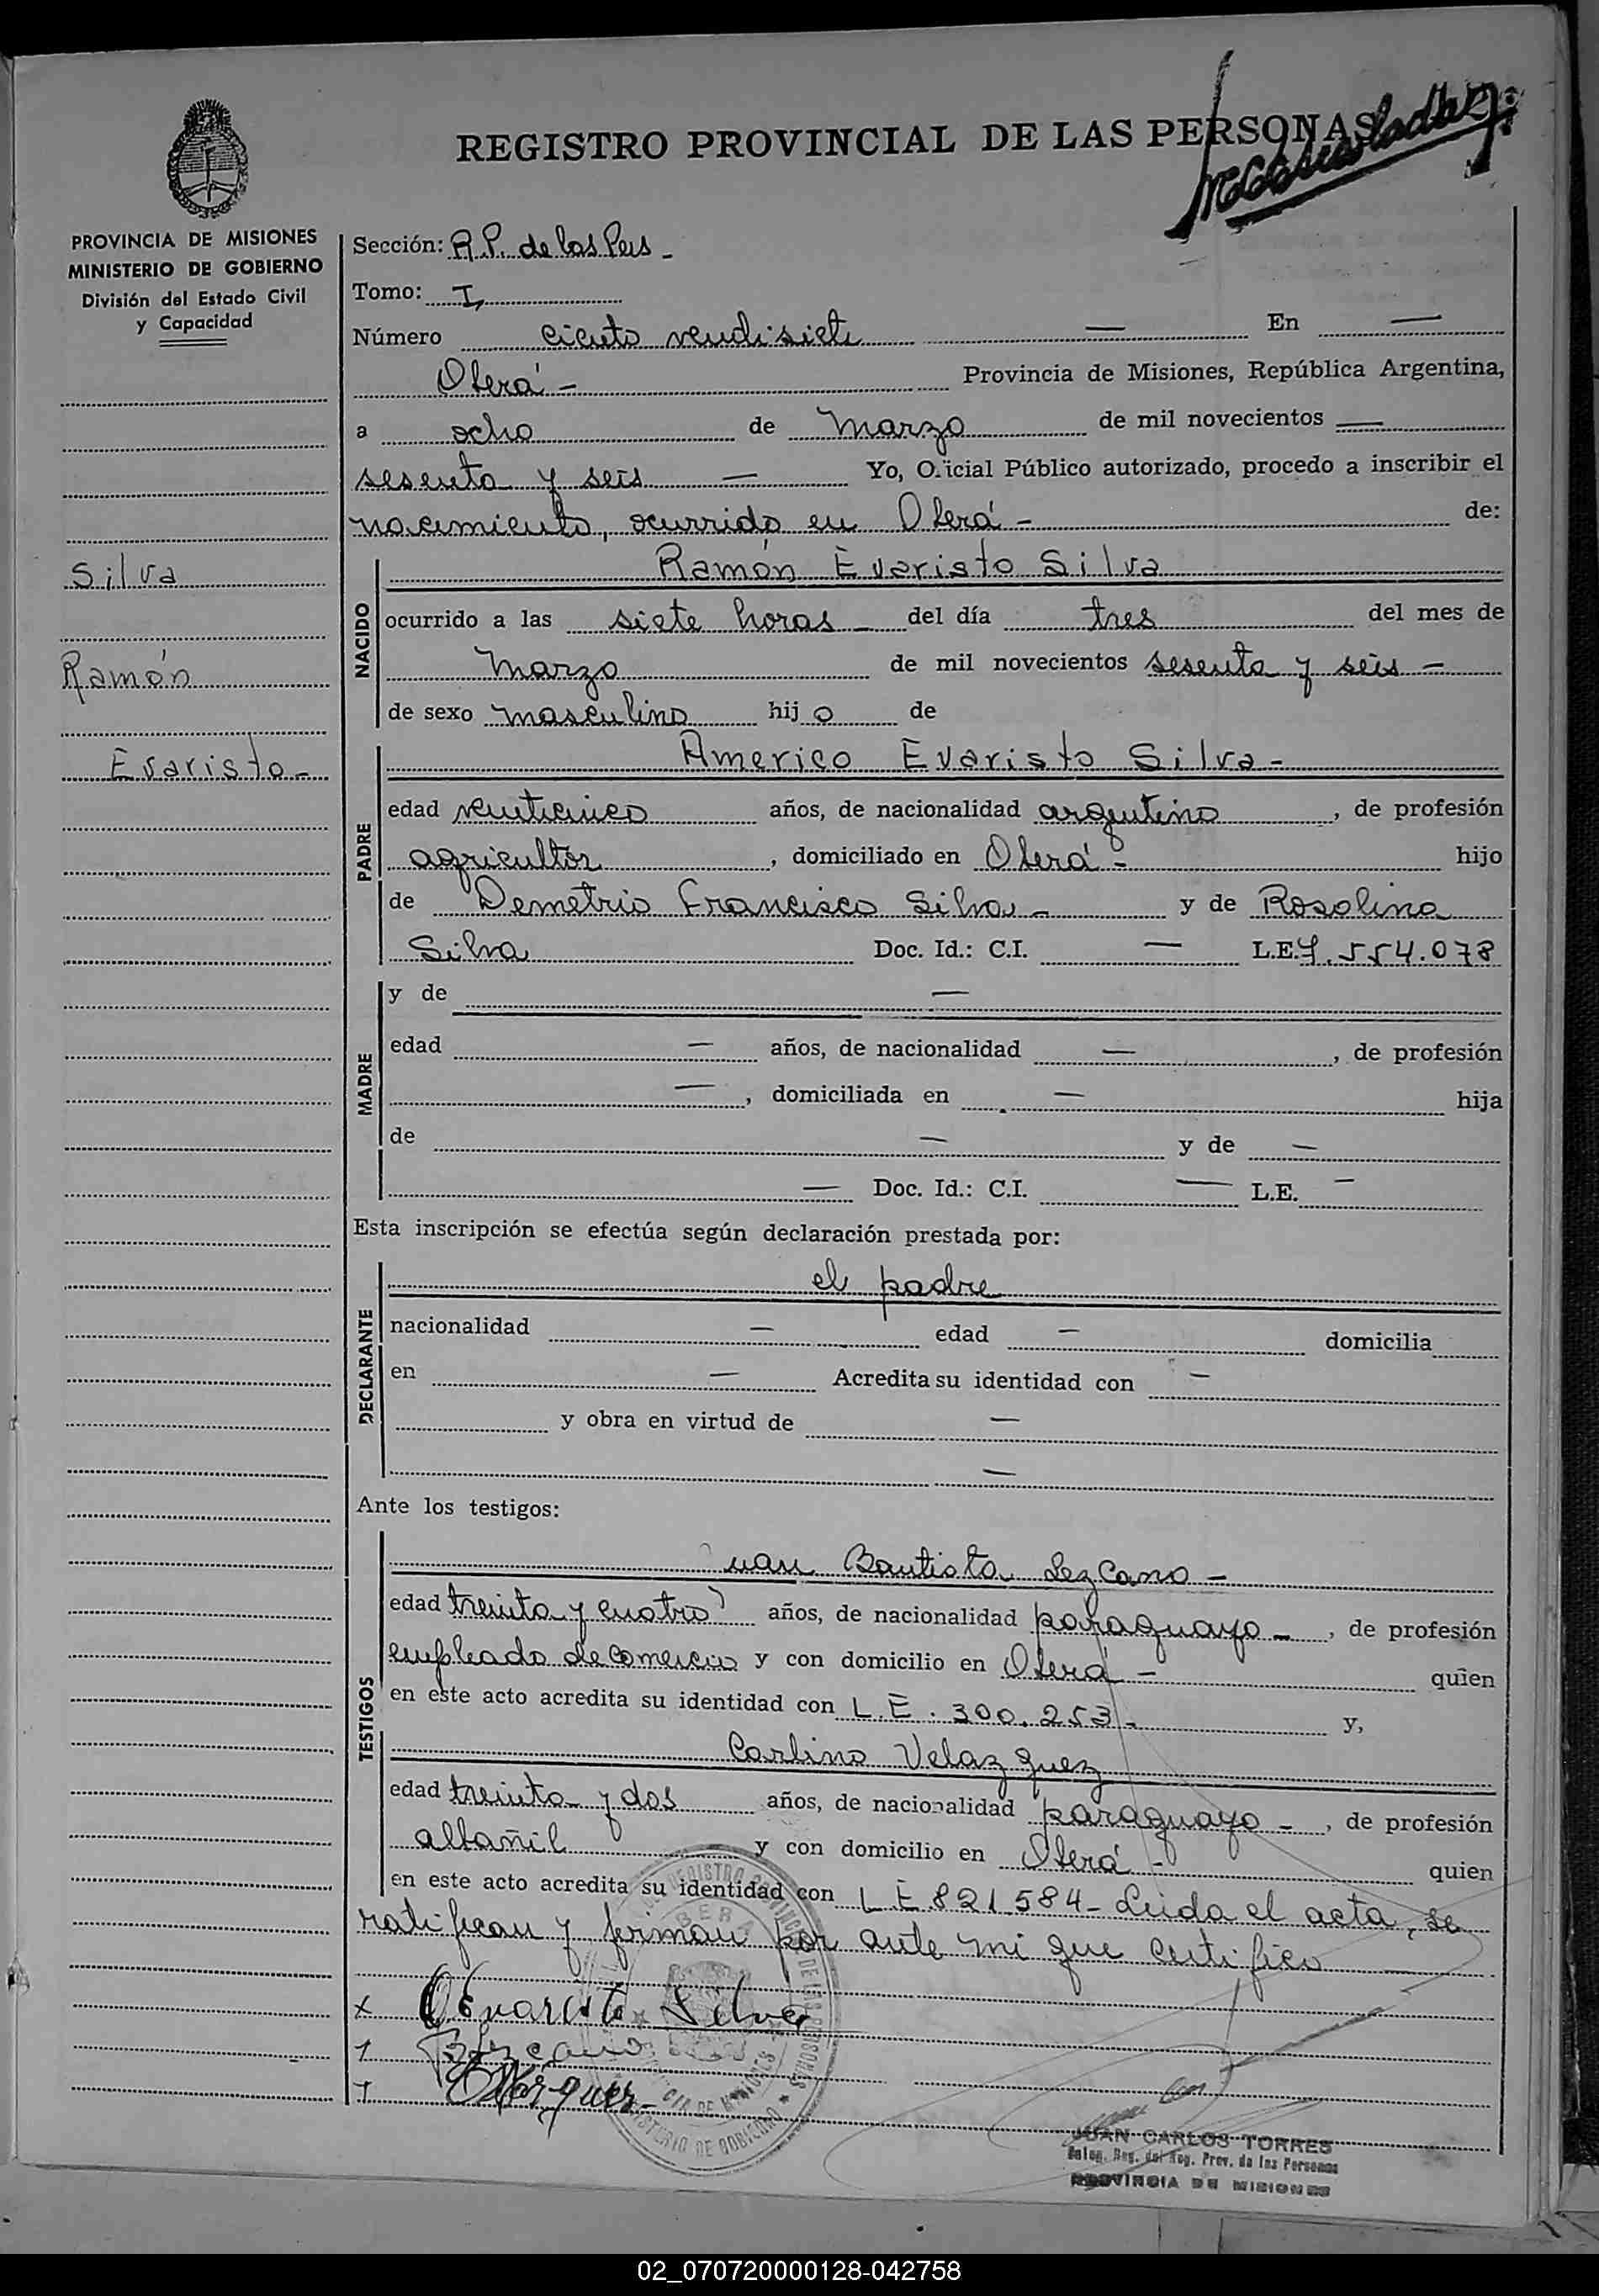 REGISTRO PROVINCIAL DE LAS PERSONAS
PROVINCIA DE MISIONES
MINISTERIO DE GOBIERNO
División del Estado Civil
y Capacidad
Silva
Ramón
Evaristo-
Sección: R.P. de las Pers -
Tomo: I
Número ciento veintisiete — En —
Oberá - Provincia de Misiones, República Argentina,
a ocho de Marzo de mil novecientos —
sesenta y seis — Yo, Oficial Público autorizado, procedo a inscribir el
nacimiento, ocurrido en Oberá - de:
NACIDO
Ramón Evaristo Silva
ocurrido a las siete horas - del día tres del mes de
Marzo de mil novecientos sesenta y seis -
de sexo masculino hijo de
PADRE
Americo Evaristo Silva-
edad veinticinco años, de nacionalidad argentino, de profesión
agricultor, domiciliado en Oberá - hijo
de Demetrio Francisco Silva - y de Rosolina
Silva Doc. Id.: C.I. — L.E. 7.554.078
MADRE
y de —
edad — años, de nacionalidad —, de profesión
—, domiciliada en — hija
de — y de —
— Doc. Id.: C.I. — L.E. —
Esta inscripción se efectúa según declaración prestada por:
DECLARANTE
el padre
nacionalidad — edad — domicilia
en — Acredita su identidad con —
y obra en virtud de —
—
Ante los testigos:
TESTIGOS
Juan Bautista Lezcano -
edad treinta y cuatro años, de nacionalidad paraguayo -, de profesión
empleado de comercio y con domicilio en Oberá - quien
en este acto acredita su identidad con L.E. 300.253 - y,
Carlino Velazquez
edad treinta y dos años, de nacionalidad paraguayo -, de profesión
albañil y con domicilio en Oberá - quien
en este acto acredita su identidad con L.E. 821.584 - Leida el acta, se
ratifican y firman por ante mi que certifico
x Evaristo Silva
JUAN CARLOS TORRES
Deleg. Reg. del Reg. Prov. de las Personas
PROVINCIA DE MISIONES
02_070720000128-042758